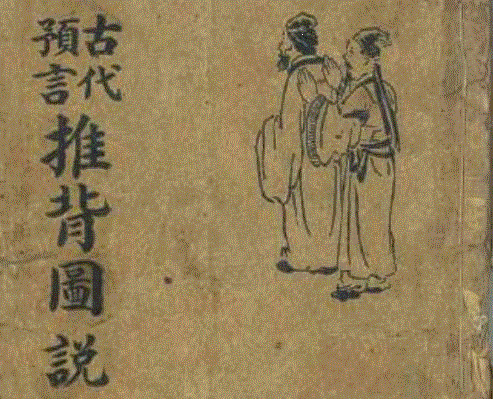 古代
預言
推背圖說